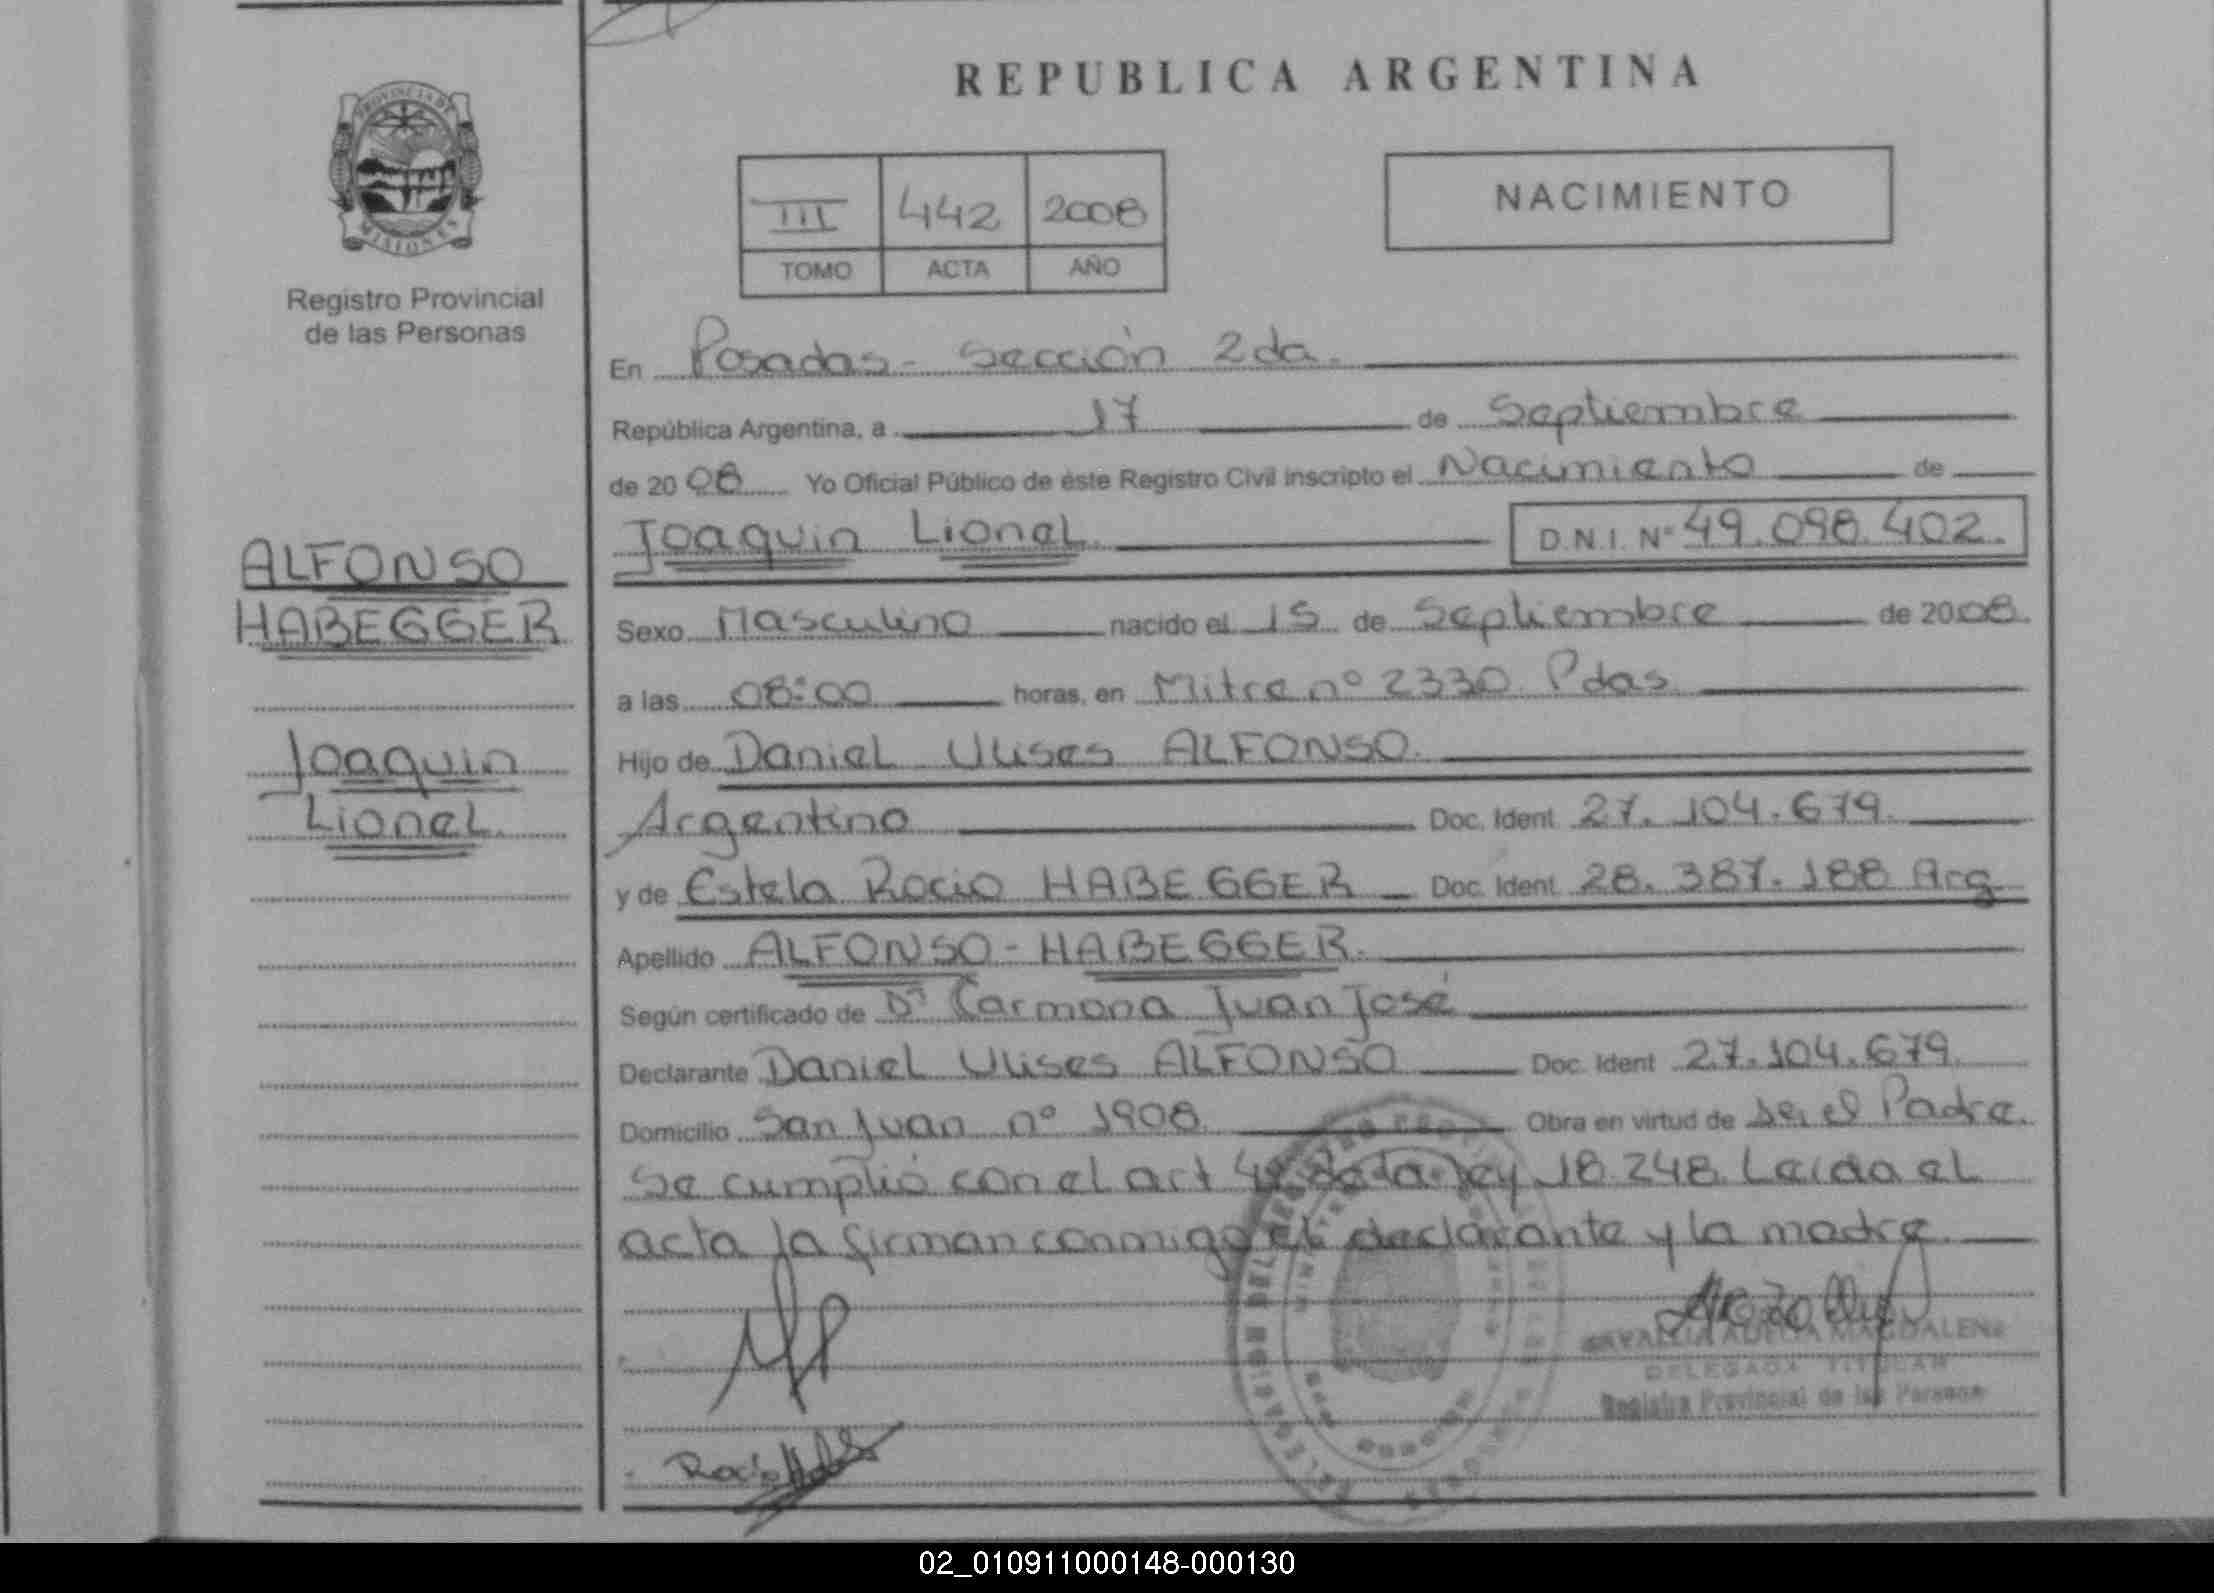 PROVINCIA DE
MISIONES
Registro Provincial
de las Personas
ALFONSO
HABEGGER
Joaquin
Lionel.
REPUBLICA ARGENTINA
III 442 2008
TOMO ACTA AÑO
NACIMIENTO
En Posadas - Sección 2da.
República Argentina, a 17 de Septiembre
de 20 08 Yo Oficial Público de éste Registro Civil inscripto el Nacimiento de
Joaquin Lionel. D.N.I. Nº 49.098.402.
Sexo Masculino nacido el 15 de Septiembre de 2008.
a las 08:00 horas, en Mitre nº 2330 Pdas.
Hijo de Daniel Ulises ALFONSO.
Argentino Doc. Ident 27.104.679.
y de Estela Rocio HABEGGER Doc. Ident 28.387.188 Arg
Apellido ALFONSO - HABEGGER.
Según certificado de Dr Carmona Juan José
Declarante Daniel Ulises ALFONSO Doc. Ident 27.104.679.
Domicilio San Juan nº 1908 Obra en virtud de ser el Padre.
Se cumplió con el art 4º de la ley 18.248. Leida el
acta la firman conmigo el declarante y la madre.
MAGDALENA
DELEGADA TITULAR
Registro Provincial de las Personas
Rocio
02_010911000148-000130